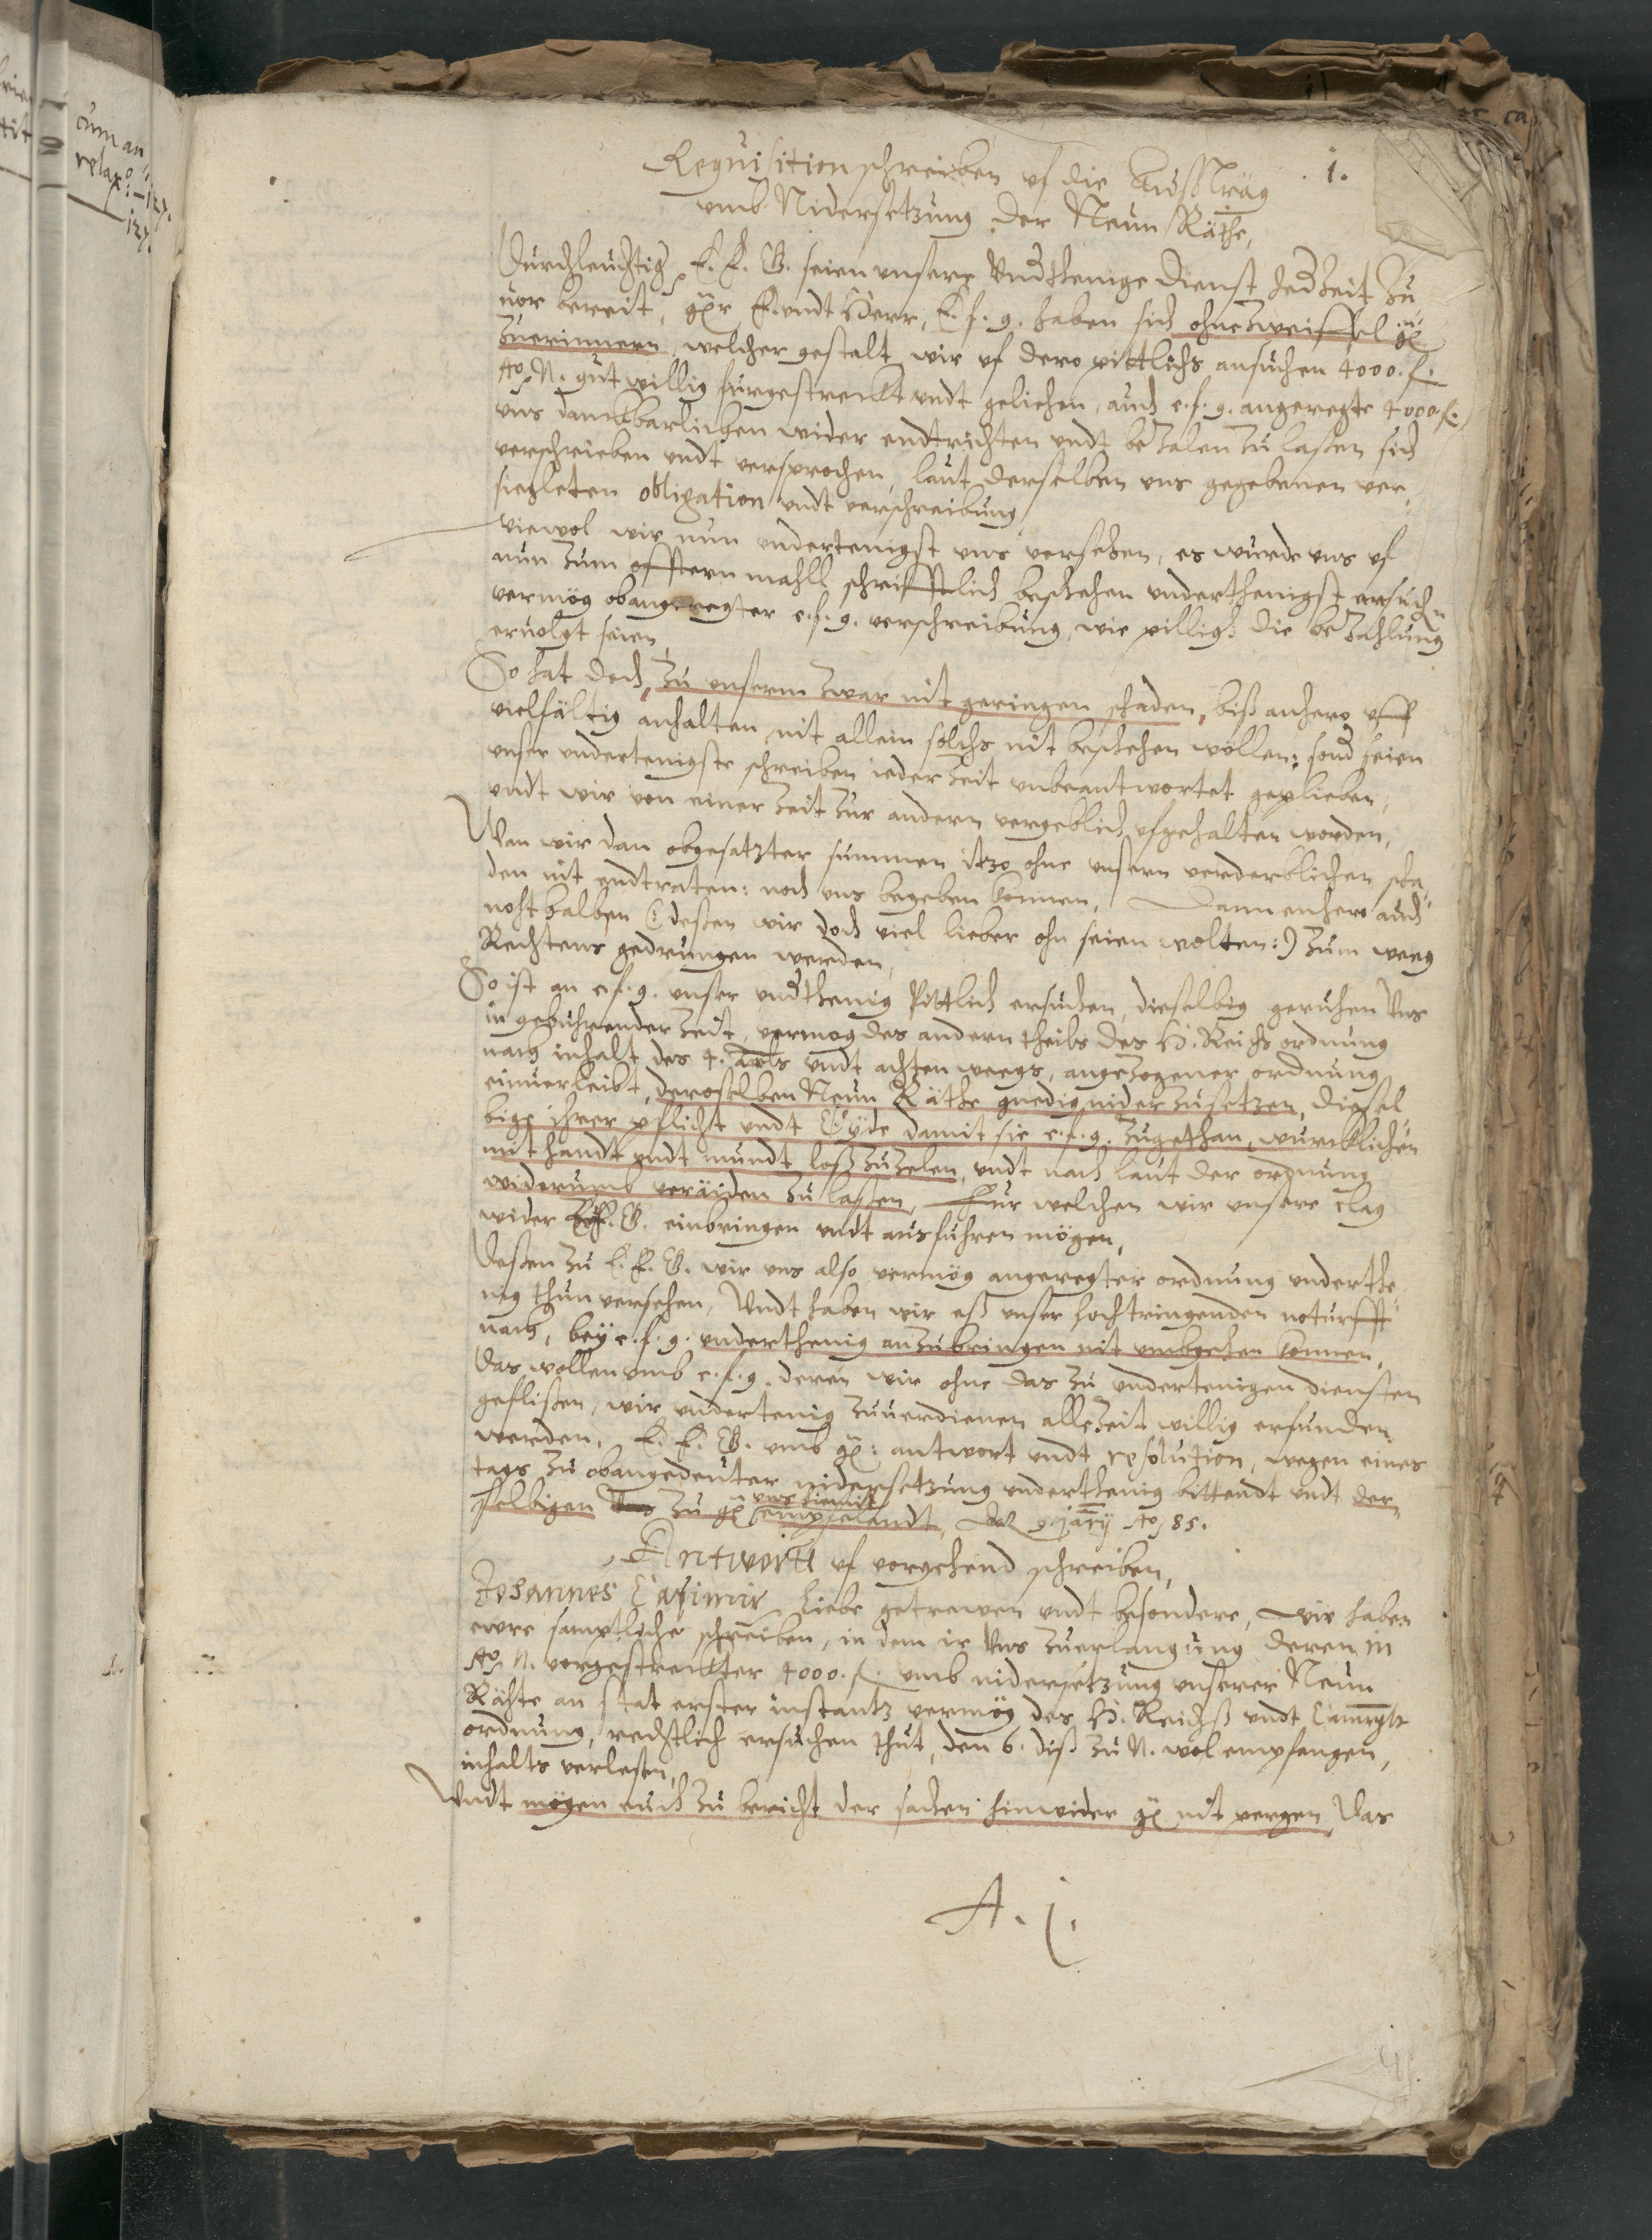 cum an
relax: 127.
127.
1.
Requisition schreiben uf die Außträg
umb Nidersetzung der Neun Räthe,
Durchleuchtig, E. F. G. seien unsere Underthenige dienst jederzeit zu
vor bereit, F. undt Herr, E. f. g. haben sich ohne zweiffel
zuerinnern, welcher gestalt wir uf dero pittlichs ansuchen 4000. f.
Ao N. gutwillig furgestreckt undt geliehen, auch e. f. g. angeregte 4000 f.
uns danckbarlichen wider endtrichten undt bezalen zu laßen sich
verschrieben undt versprochen, laut derselben uns gegebenen ver,
siegleten obligation undt verschreibung,
Wiewol wir nun undertenigst uns versehen, es wurde uns uf
nun zum offtern mahll schrifftlich beschehen underthenigst ersuchen
vermög obangeregter e. f. g. verschreibung, wie pillich die bezahlung
ervolgt seien,
So hat doch, zu unserm zwar nit geringen schaden, biß anhero uff
vielfältig anhalten, nit allein solchs nit beschehen wöllen: sond seien
unser undertenigste schreiben ieder zeit unbeantwortet geplieben,
undt wir von einer zeit zur andern vergeblich ufgehalten worden,
Wan wir dan obgesatzter summen itzo ohne unsern verderblichen scha,
den nit endtraten: noch uns begeben konnen, Dannenhero auch
noht halben (: deßen wir doch viel lieber ohn seien wolten :) zum weeg
Rechtens gedrungen werden,
So ist an e. f. g. unser undthenig pittlich ersuchen, dieselbig geruhen Uns
in gepuhrender zeit, vermog des andern theils des H. Reichs ordnung
nach inhalt des 4. undt achten weegs, angezogener ordnung
einverleibt, deroselben Neun Räthe gnedig niderzusetzen, diesel,
bige ihrer pflicht undt Eyde damit sie e. f. g. zugethan, wurcklichen
mit handt undt mundt loß zuzelen, undt nach laut der ordnung
widerumb veräiden zu laßen, Fur welchen wir unsere clag
wider E. F. G. einbringen undt ausfuhren mögen,
Deßen zu E. F. G. wir uns also vermög angeregter ordnung underthe,
nig thun versehen, Undt haben wir eß unser hochtringenden noturfft
nach, bey e. f. g. underthenig anzubringen nit umbgehen konnen,
Das wollen umb e. f. g. deren wir ohne das zu undertenigen diensten
geflißen, wir undertenig zuverdienen allezeit willig erfunden
werden, E. F. G. umb antwort undt resolution, wegen eines
tags zu obangedeuter nidersetzung underthenig bittendt undt der,
selbigen zu uns hiemit empfelendt, 9. jarij Ao 85.
Antwortt uf vorgehend schreiben,
Johannes Casimir Liebe getrewen undt besondere, Wir haben
ewre samptliche schreiben, in dem ir Uns zuerlangung deren in
Ao N. vorgestreckter 4000. f. umb nidersetzung unserer Neun
Rähte an stat erster instantz vermög des H. Reichß undt
ordnung, rechtlich ersuchen thut, den 6. diß zu N. wol empfangen,
inhalts verlesen,
Undt mögen euch zu bericht der sachen hinwider nit pergen, Das
A. j.